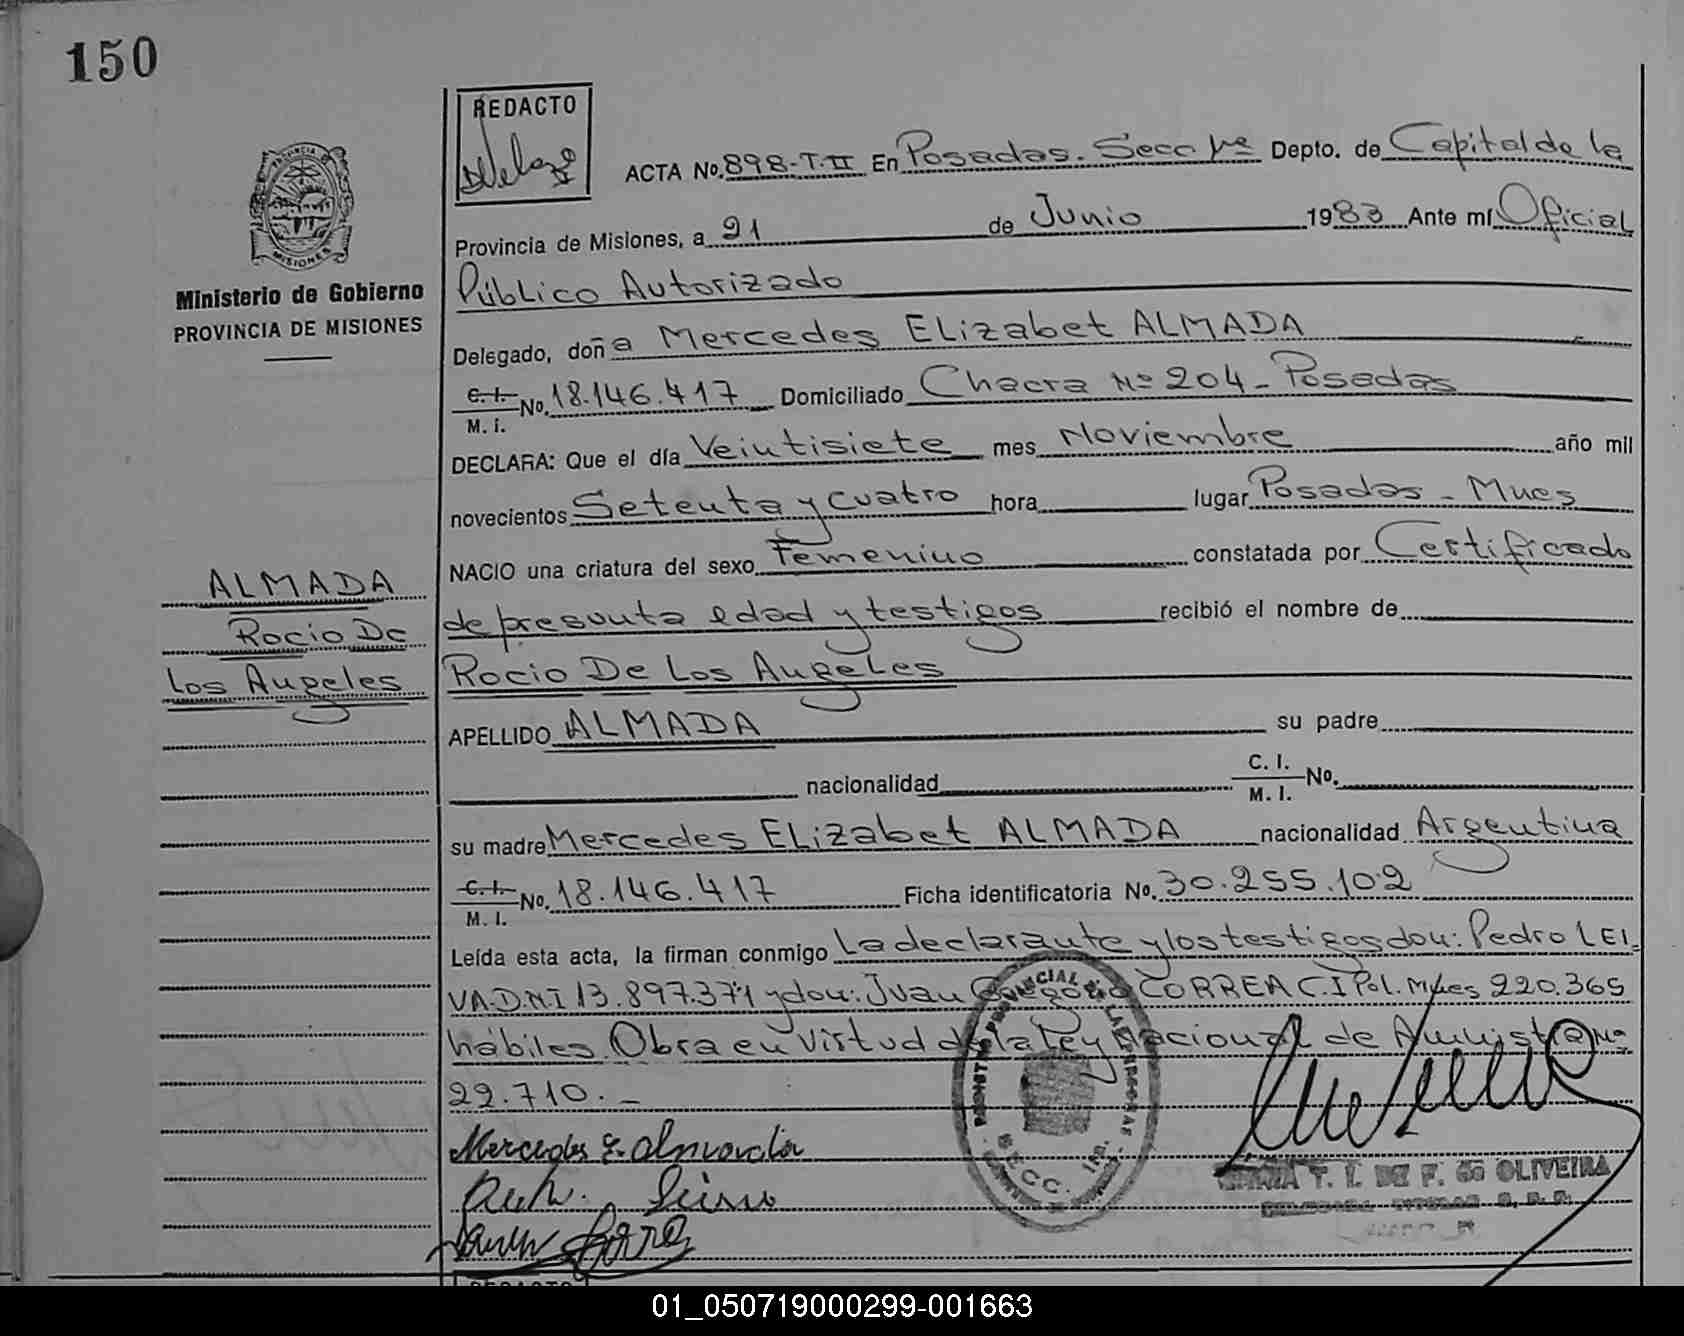 150
REDACTO
ACTA No. 898-T-II En Posadas. Secc 1ª Depto. de Capital de la
Provincia de Misiones, a 21 de Junio 1983 Ante mí Oficial
Ministerio de Gobierno
PROVINCIA DE MISIONES
Público Autorizado
Delegado, doña Mercedes ELizabet ALMADA
C. I. M. I. No. 18.146.417 Domiciliado Chacra Nº 204 - Posadas
DECLARA: Que el día Veintisiete mes Noviembre año mil
novecientos Setenta y cuatro hora lugar Posadas - Mnes
NACIO una criatura del sexo Femenino constatada por Certificado
ALMADA
Rocio De
Los Angeles
de presunta edad y testigos recibió el nombre de
Rocio De Los Angeles
APELLIDO ALMADA su padre
nacionalidad C. I. M. I. No.
su madre Mercedes ELizabet ALMADA nacionalidad Argentina
C. I. M. I. No. 18.146.417 Ficha identificatoria No. 30.255.102
Leída esta acta, la firman conmigo La declarante y los testigos don: Pedro LEI-
VA D.N.I 13.897.371 y don: Juan Gregorio CORREA C.I Pol. Mnes 220.365
hábiles. Obra en virtud de la Ley Nacional de Amnistía Nº
22.710.-
Mercedes E. Almada
SECC.
T. I. DE F. de OLIVEIRA
REDACTO
01_050719000299-001663